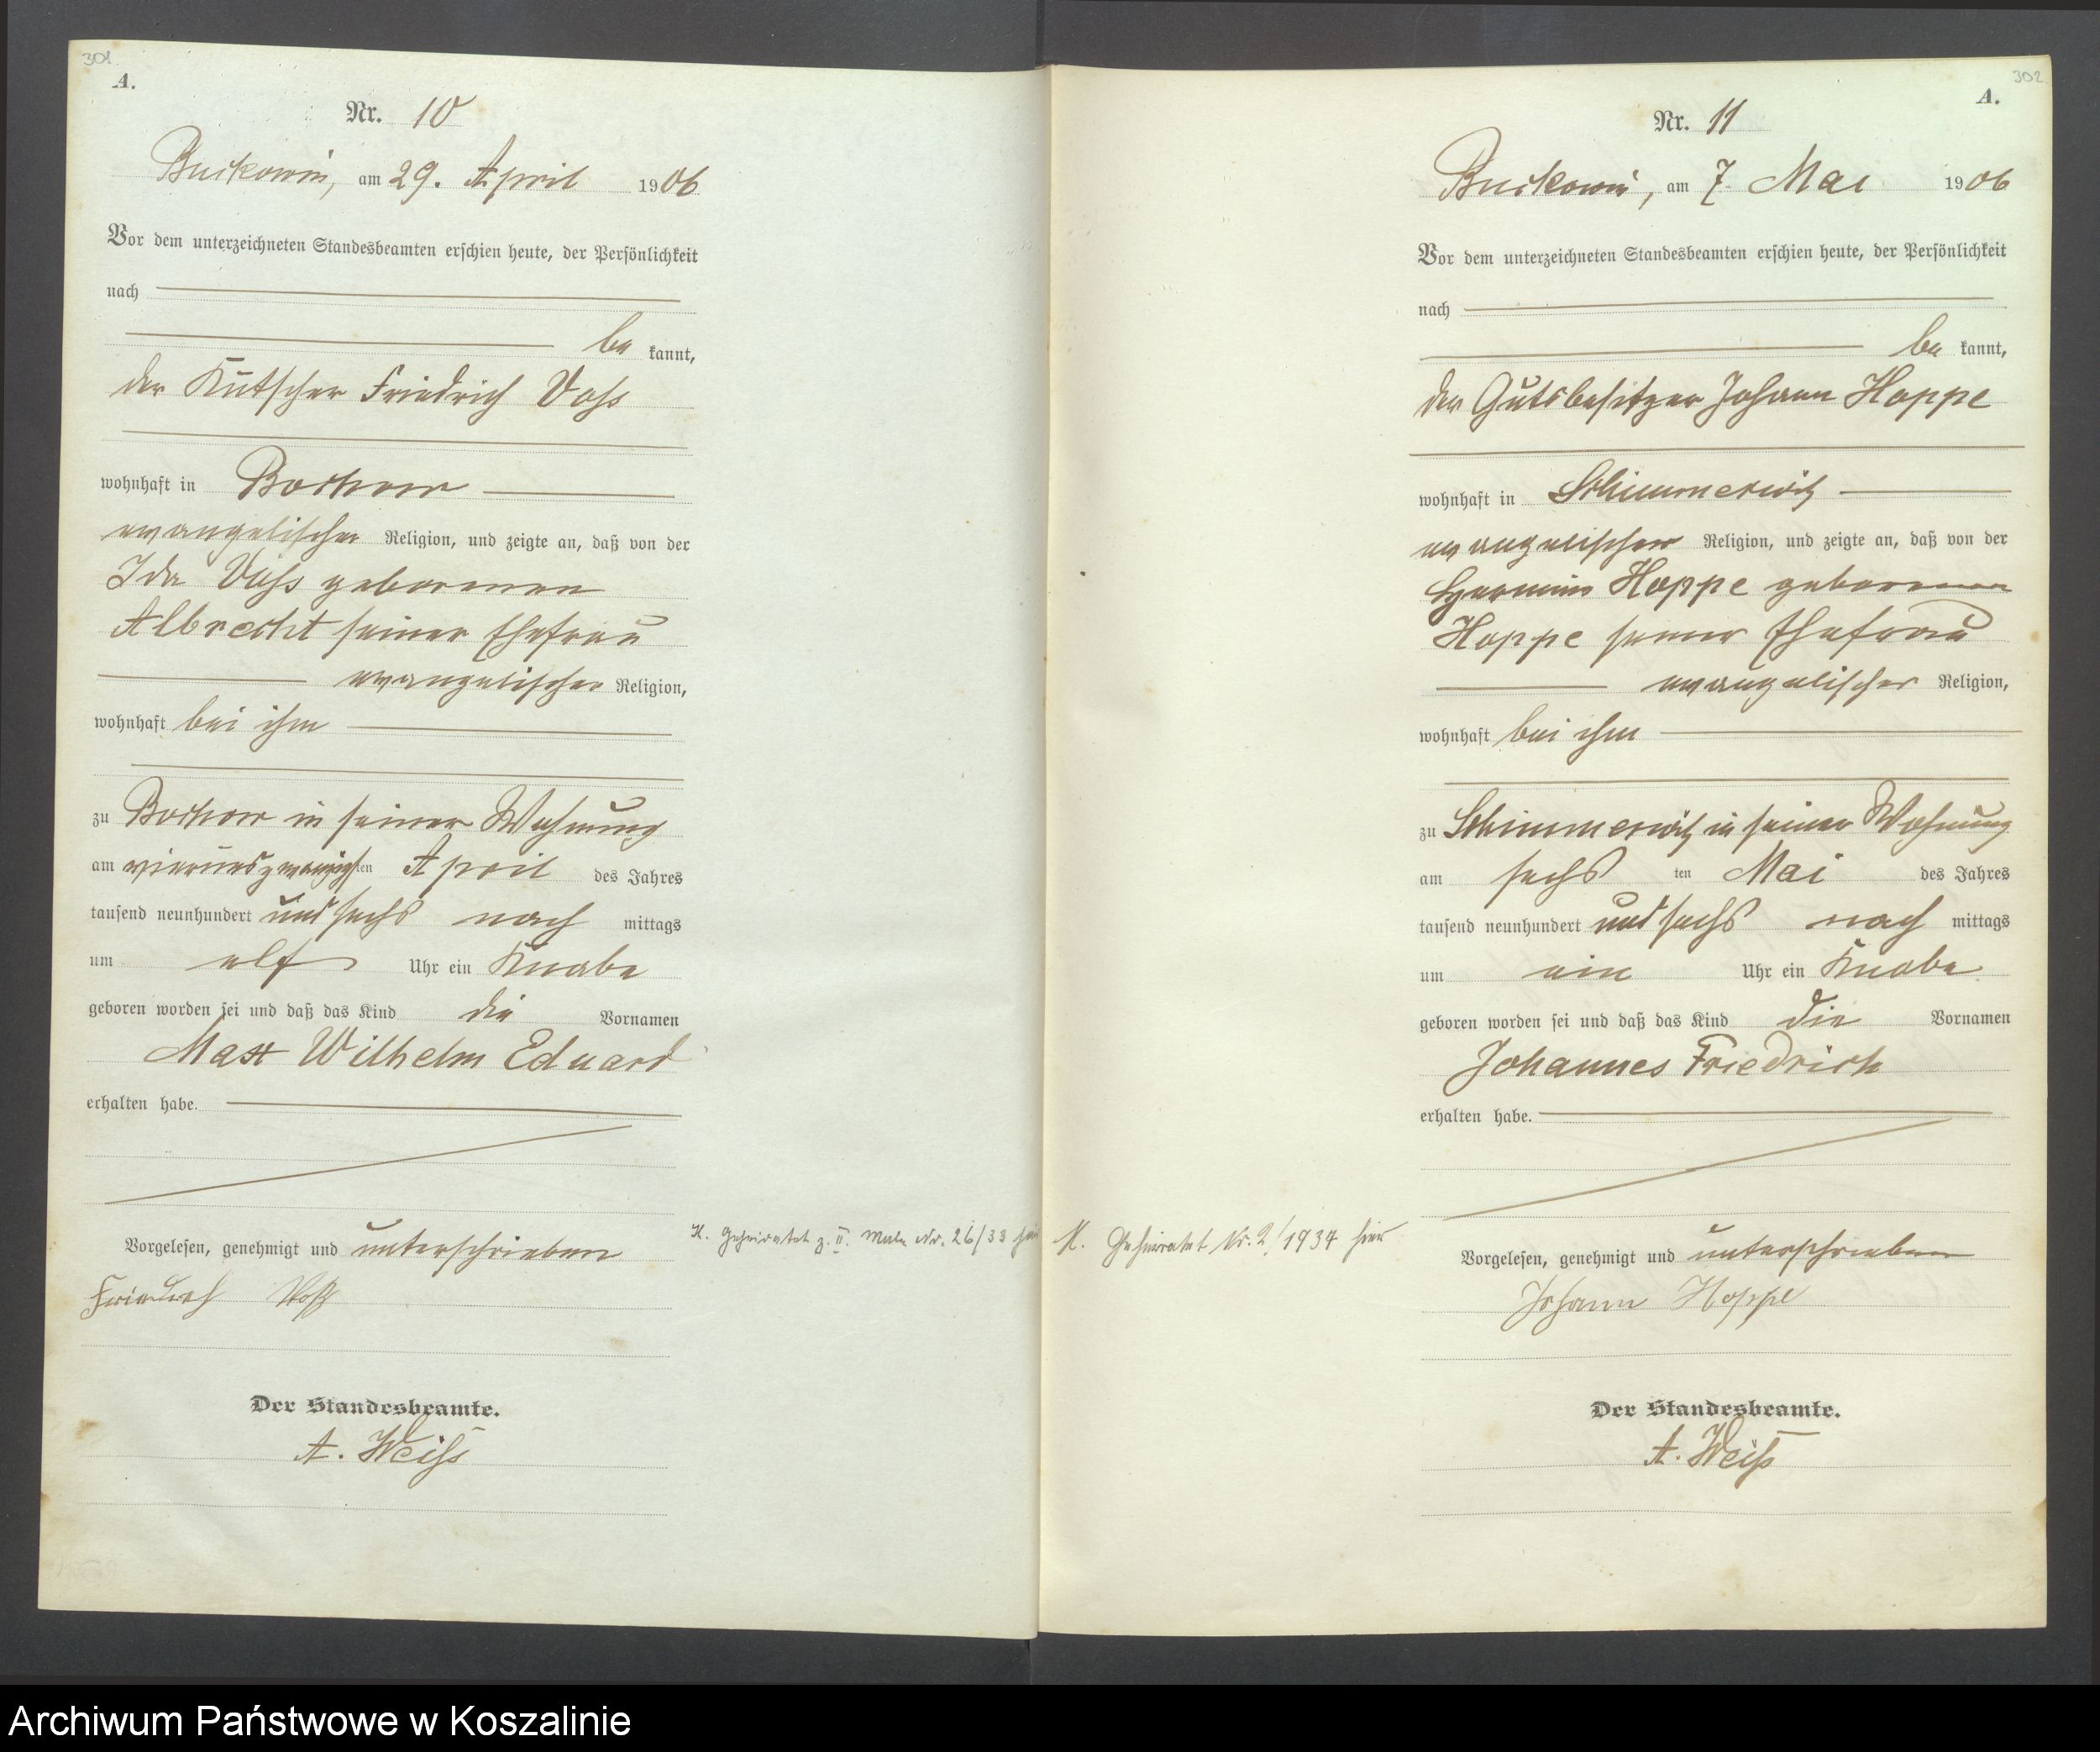 301.
A.
Nr. 10
Buckowin, am 29. April 1906
Vor dem unterzeichneten Standesbeamten erschien heute, der Persönlichkeit
nach
be kannt,
der Kutscher Friedrich Voss
wohnhaft in Bochow
evangelischer Religion, und zeigte an, daß von der
Ida Voss geborenen
Albrecht seiner Ehefrau
evangelischer Religion,
wohnhaft bei ihm
zu Bochow in seiner Wohnung
am vierundzwanzigsten April des Jahres
tausend neunhundert und sechs nach mittags
um elf Uhr ein Knabe
geboren worden sei und daß das Kind die Vornamen
Max Wilhelm Eduard
erhalten habe.
Vorgelesen, genehmigt und unterschrieben
Friedrich Voß
Der Standesbeamte.
A. Weiss
K. Geheiratet z. II. Male Nr. 26/33 hier
302
A.
Nr. 11
Buckowin, am 7. Mai 1906
Vor dem unterzeichneten Standesbeamten erschien heute, der Persönlichkeit
nach
be kannt,
der Gutsbesitzer Johann Hoppe
wohnhaft in Schimmerwitz
evangelischer Religion, und zeigte an, daß von der
Hermine Hoppe geborenen
Hoppe seiner Ehefrau
evangelischer Religion,
wohnhaft bei ihm
zu Schimmerwitz in seiner Wohnung
am sechs ten Mai des Jahres
tausend neunhundert und sechs nach mittags
um ein Uhr ein Knabe
geboren worden sei und daß das Kind die Vornamen
Johannes Friedrich
erhalten habe.
K. Geheiratet Nr. 2/1934 hier
Vorgelesen, genehmigt und unterschrieben
Johann Hoppe
Der Standesbeamte.
A. Weiss
Archiwum Państwowe w Koszalinie